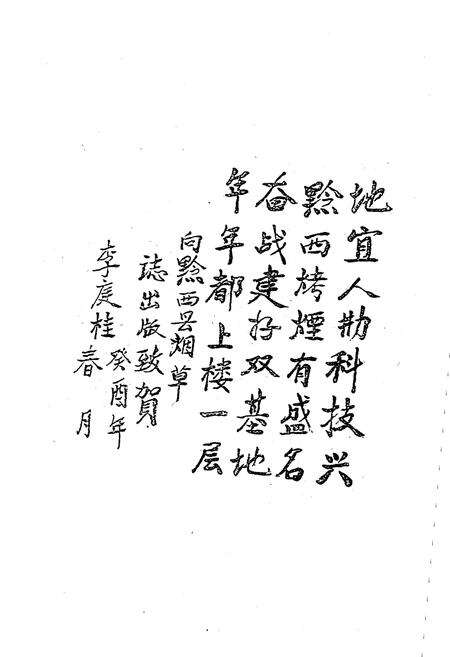 地宜人勤科技兴
黔西烤煙有盛名
奋战建好双基地
年年都上楼一层
向黔西县烟草
誌出版致賀
李庭桂 癸酉年
春月